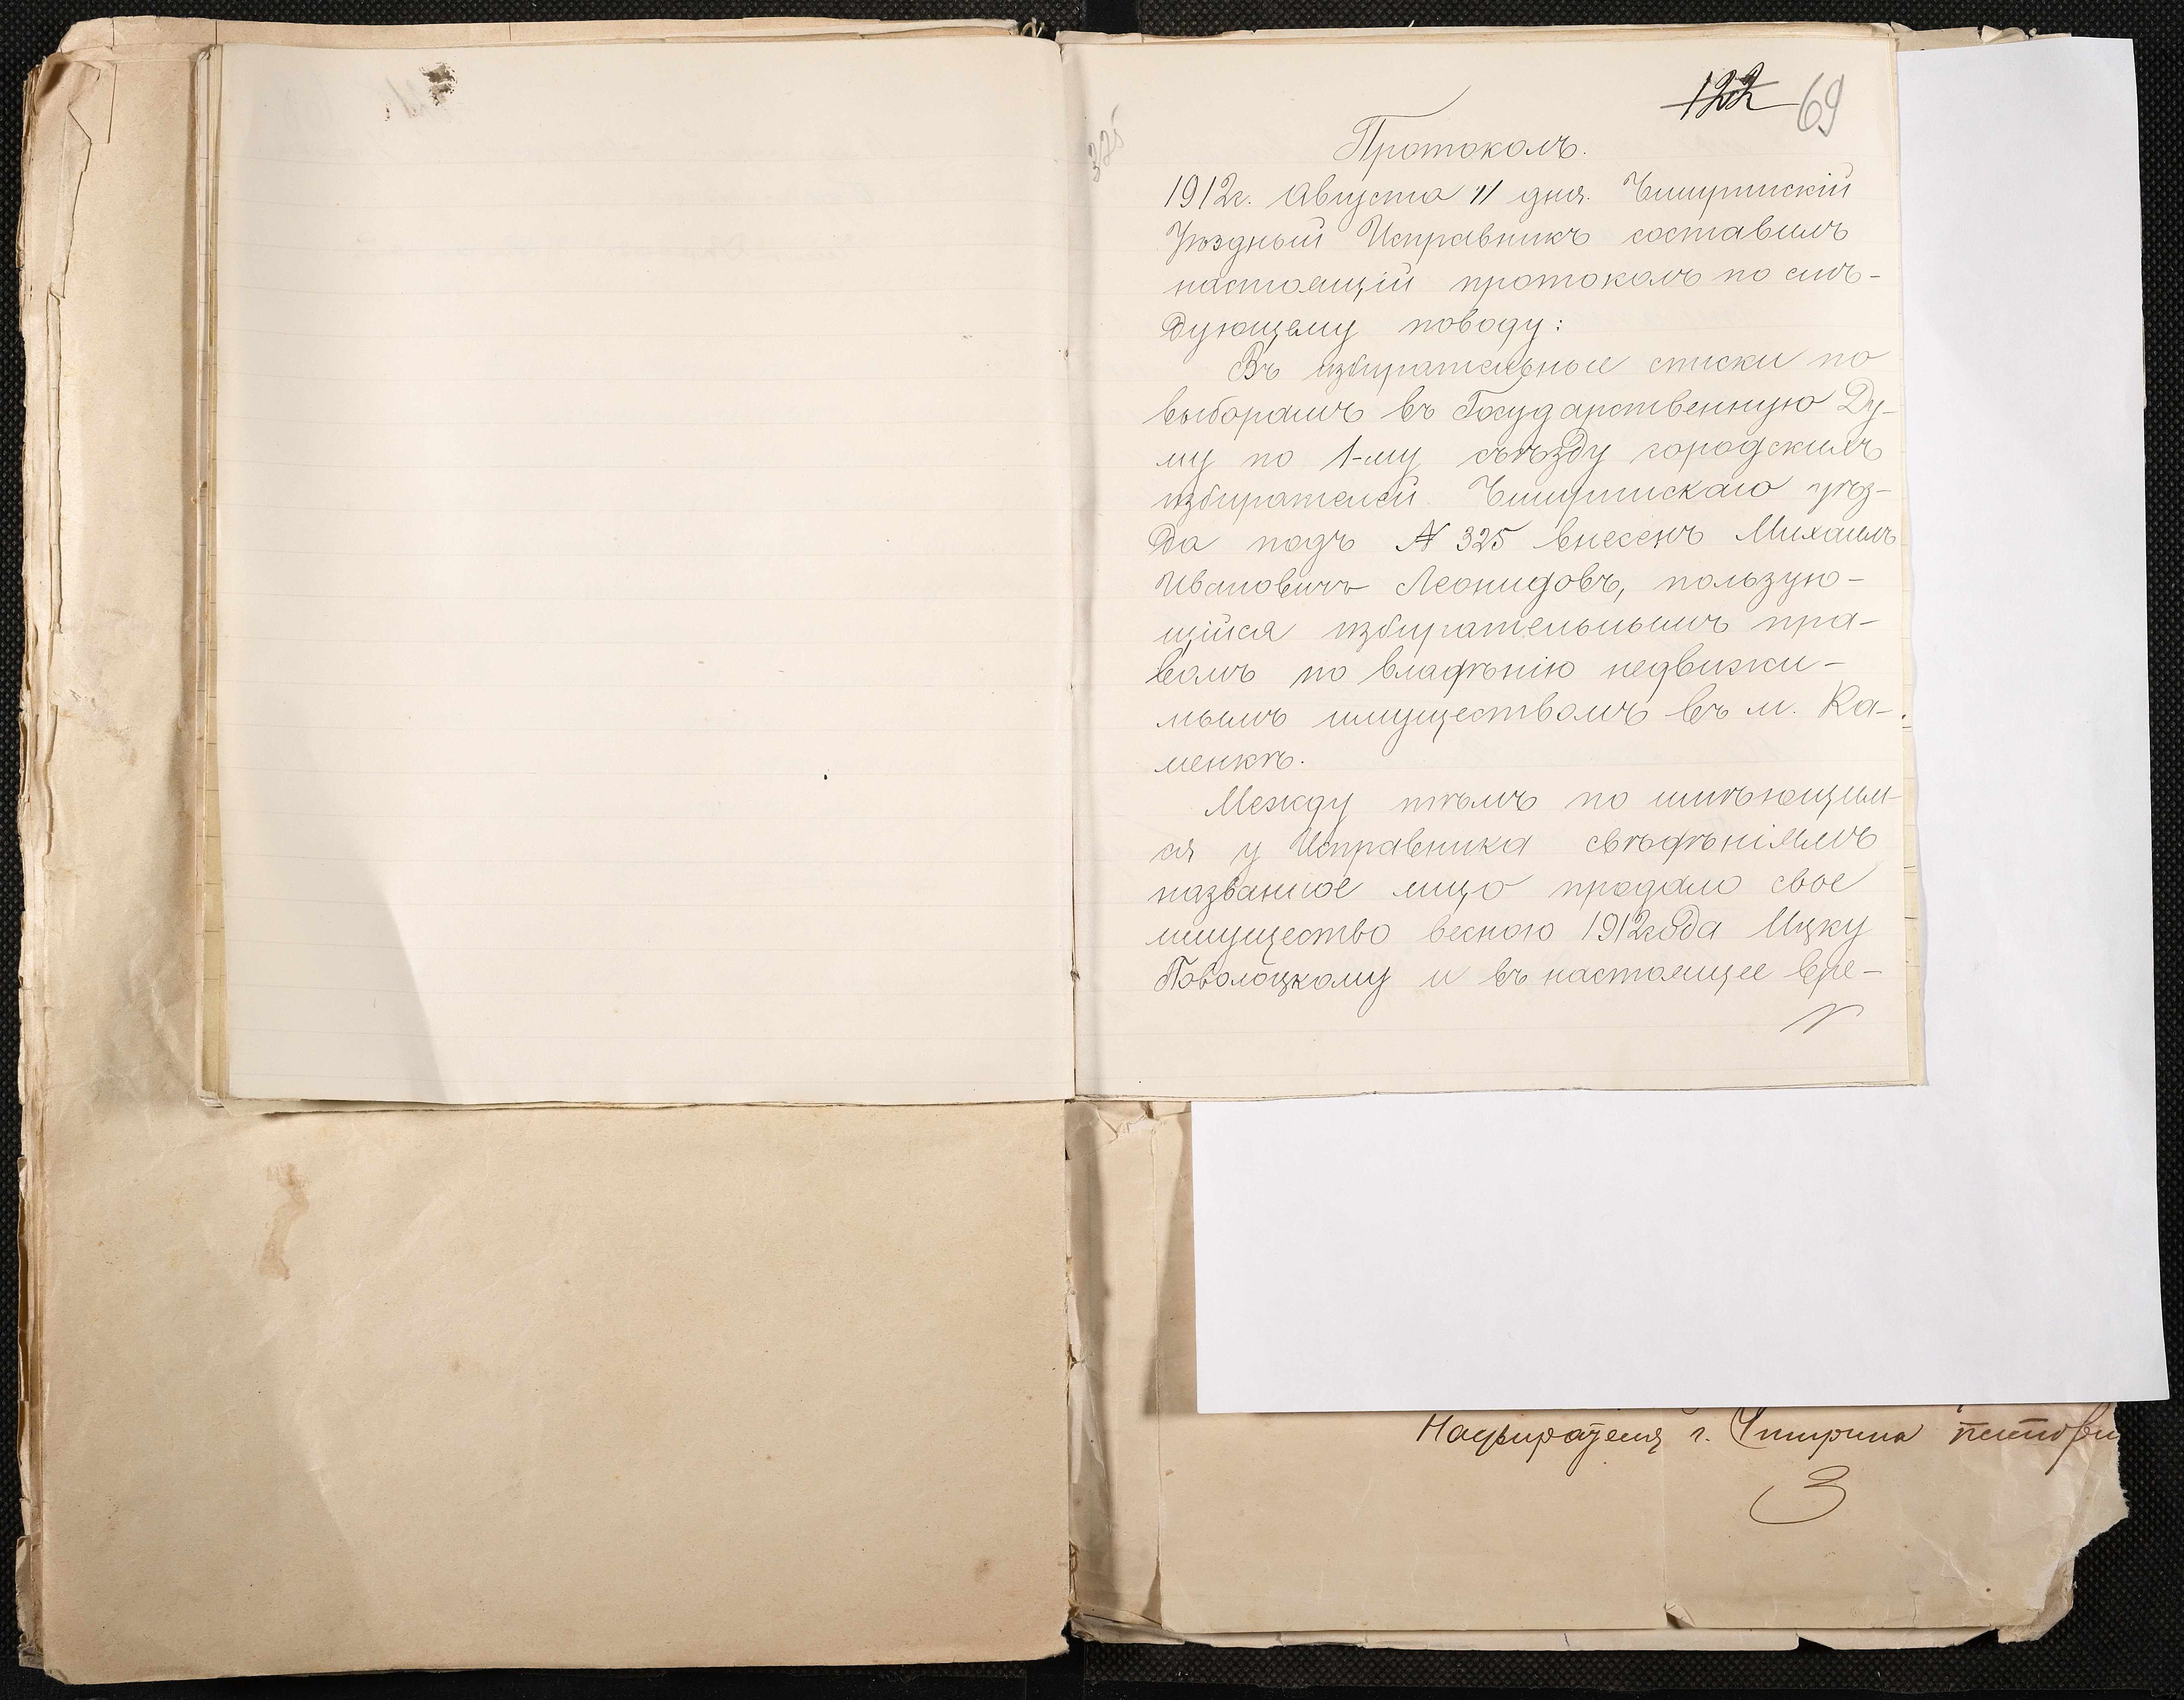 122 69
325
Протоколъ.
1912г. Августа 11 дня. Чигиринскій
Уѣздный Исправникъ составилъ
настоящій протоколъ по слѣ-
дующему поводу:
Въ избирательные списки по
выборамъ въ Государственную Ду-
му по 1-му съѣзду городскихъ
избирателей Чигиринскаго уѣз-
да подъ № 325 внесенъ Михаилъ
Ивановичъ Леонидовъ, пользую-
щійся избирательнымъ пра-
вомъ по владѣнію недвижи-
мымъ имуществомъ въ м. Ка-
менкѣ.
Между тѣмъ по имѣющим-
ся у Исправника свѣдѣніямъ
названное лицо продало свое
имущество весною 1912 года Ицку
Поволоцкому и въ настоящее вре-
г. Чигирина
3